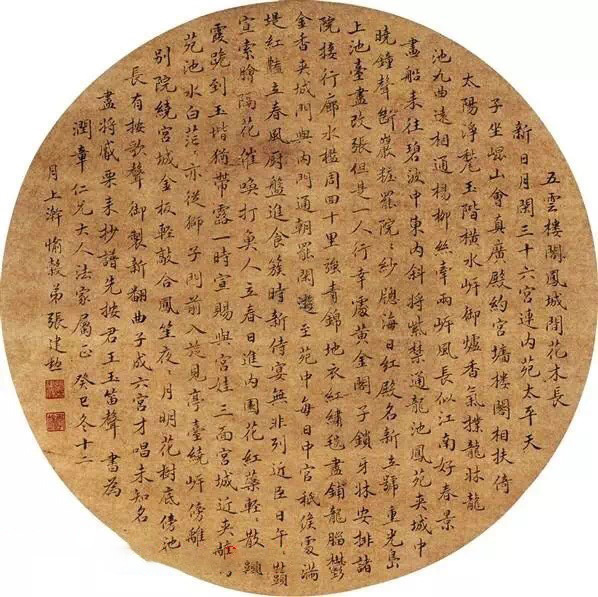 五雲樓閣鳳城間花木長
新日月閑三十六宮連內苑太平天
子坐崐山會真廣殿約宮墻樓閣相扶倚
太陽淨甃玉階橫水岍御爐香氣撲龍牀龍
池九曲遠相通楊柳絲牽兩岍風長似江南好春景
畫船來往碧波中東內斜將紫禁通龍池鳳苑夾城中
曉鐘聲斷嚴粧罷院々紗牕海日紅殿名新立號重光島
上池臺盡改張但是一人行幸處黃金閣子鎖牙牀安排諸
院接行廊水檻周四十里強青錦地衣紅繡毯盡鋪龍腦鬱
金香夾城門與內門通朝罷閑遊至苑中每日中官祗候處滿
堤紅豔立春風廚盤進食簇時新侍宴無非列近臣日午
宣索膾隔花催喚打魚人立春日進內園花紅藥輕々散
霞跪到玉揩猶帶露一時宣賜與宮娃三面宮城近夾
苑池水白茫々亦從獅子門前入旋見亭臺繞岍傍離
別院繞宮城金板輕敲合鳳笙夜々月明花樹底傍池
長有按歌聲御製新翻曲子成六宮才唱未知名
盡將觱栗來抄譜先按君王玉笛聲 書為
潤章仁兄大人法家屬正 癸巳冬十二
月上澣愉穀弟張建勳